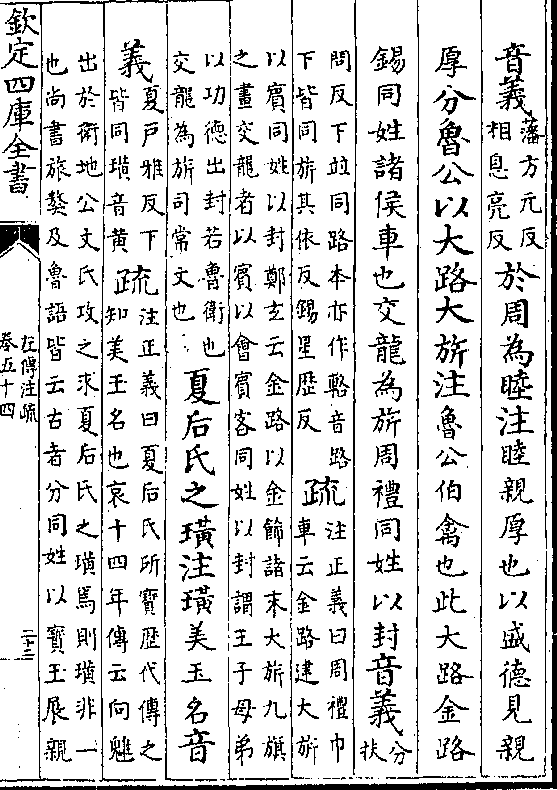 音義藩方元反相息亮反於周為睦注睦親厚也以盛德見親
厚分魯公以大路大旂注魯公伯禽也此大路金路
錫同姓諸侯車也交龍為旂周禮同姓以封音義分扶
問反下並同路本亦作輅音路下皆同旂其依反錫星歴反疏注正義曰周禮巾車云金路建大旂
以賓同姓以封鄭玄云金路以金飾諸末大旂九旗之畫交龍者以賓以會賓客同姓以封謂王子母弟
以功德出封若魯衛也交龍為旂司常文也夏后氏之璜注璜美玉名音
義夏戸雅反下皆同璜音黄疏注正義曰夏后氏所寶歴代傳之知美玉名也哀十四年傳云向魋
出於衛地公文氏攻之求夏后氏之璜焉則璜非一也尚書旅獒及魯語皆云古者分同姓以寶玉展親
欽定四庫全書
左傳注疏
卷五十四
二十三